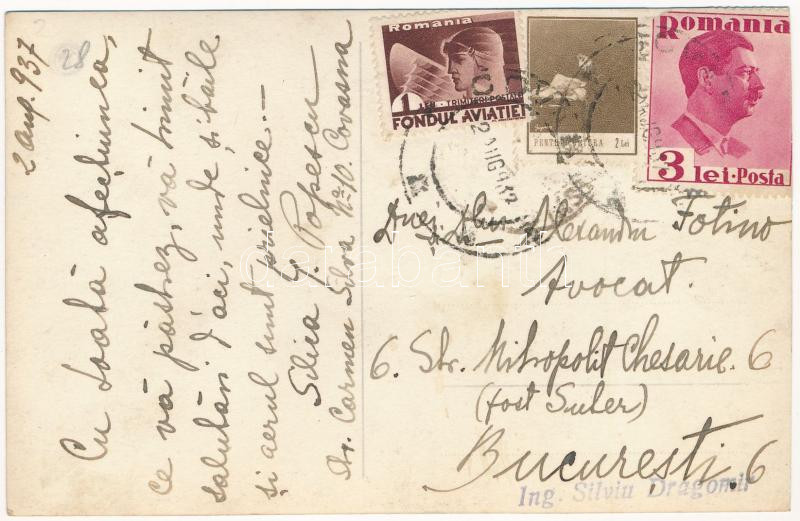 2 Aug. 937
28
Cu toată afecțiunea,
ce vă păstrez, vă trimit
salutări d'aci, unde și băile
și aerul sunt prielnice.—
Silica G. Popescu
Str. Carmen Silva No 10. Covasna
Romania
1 LEU TRIMITERI POSTALE
FONDUL AVIATIEI
2 Lei
Romania
3 lei·Posta
2 AUG 937
Alexandru Fotino
Avocat.
6. Str. Mitropolit Ghesarie 6
(fost Suter)
Bucuresti. 6
Ing. Silviu Dragomir
darabanth